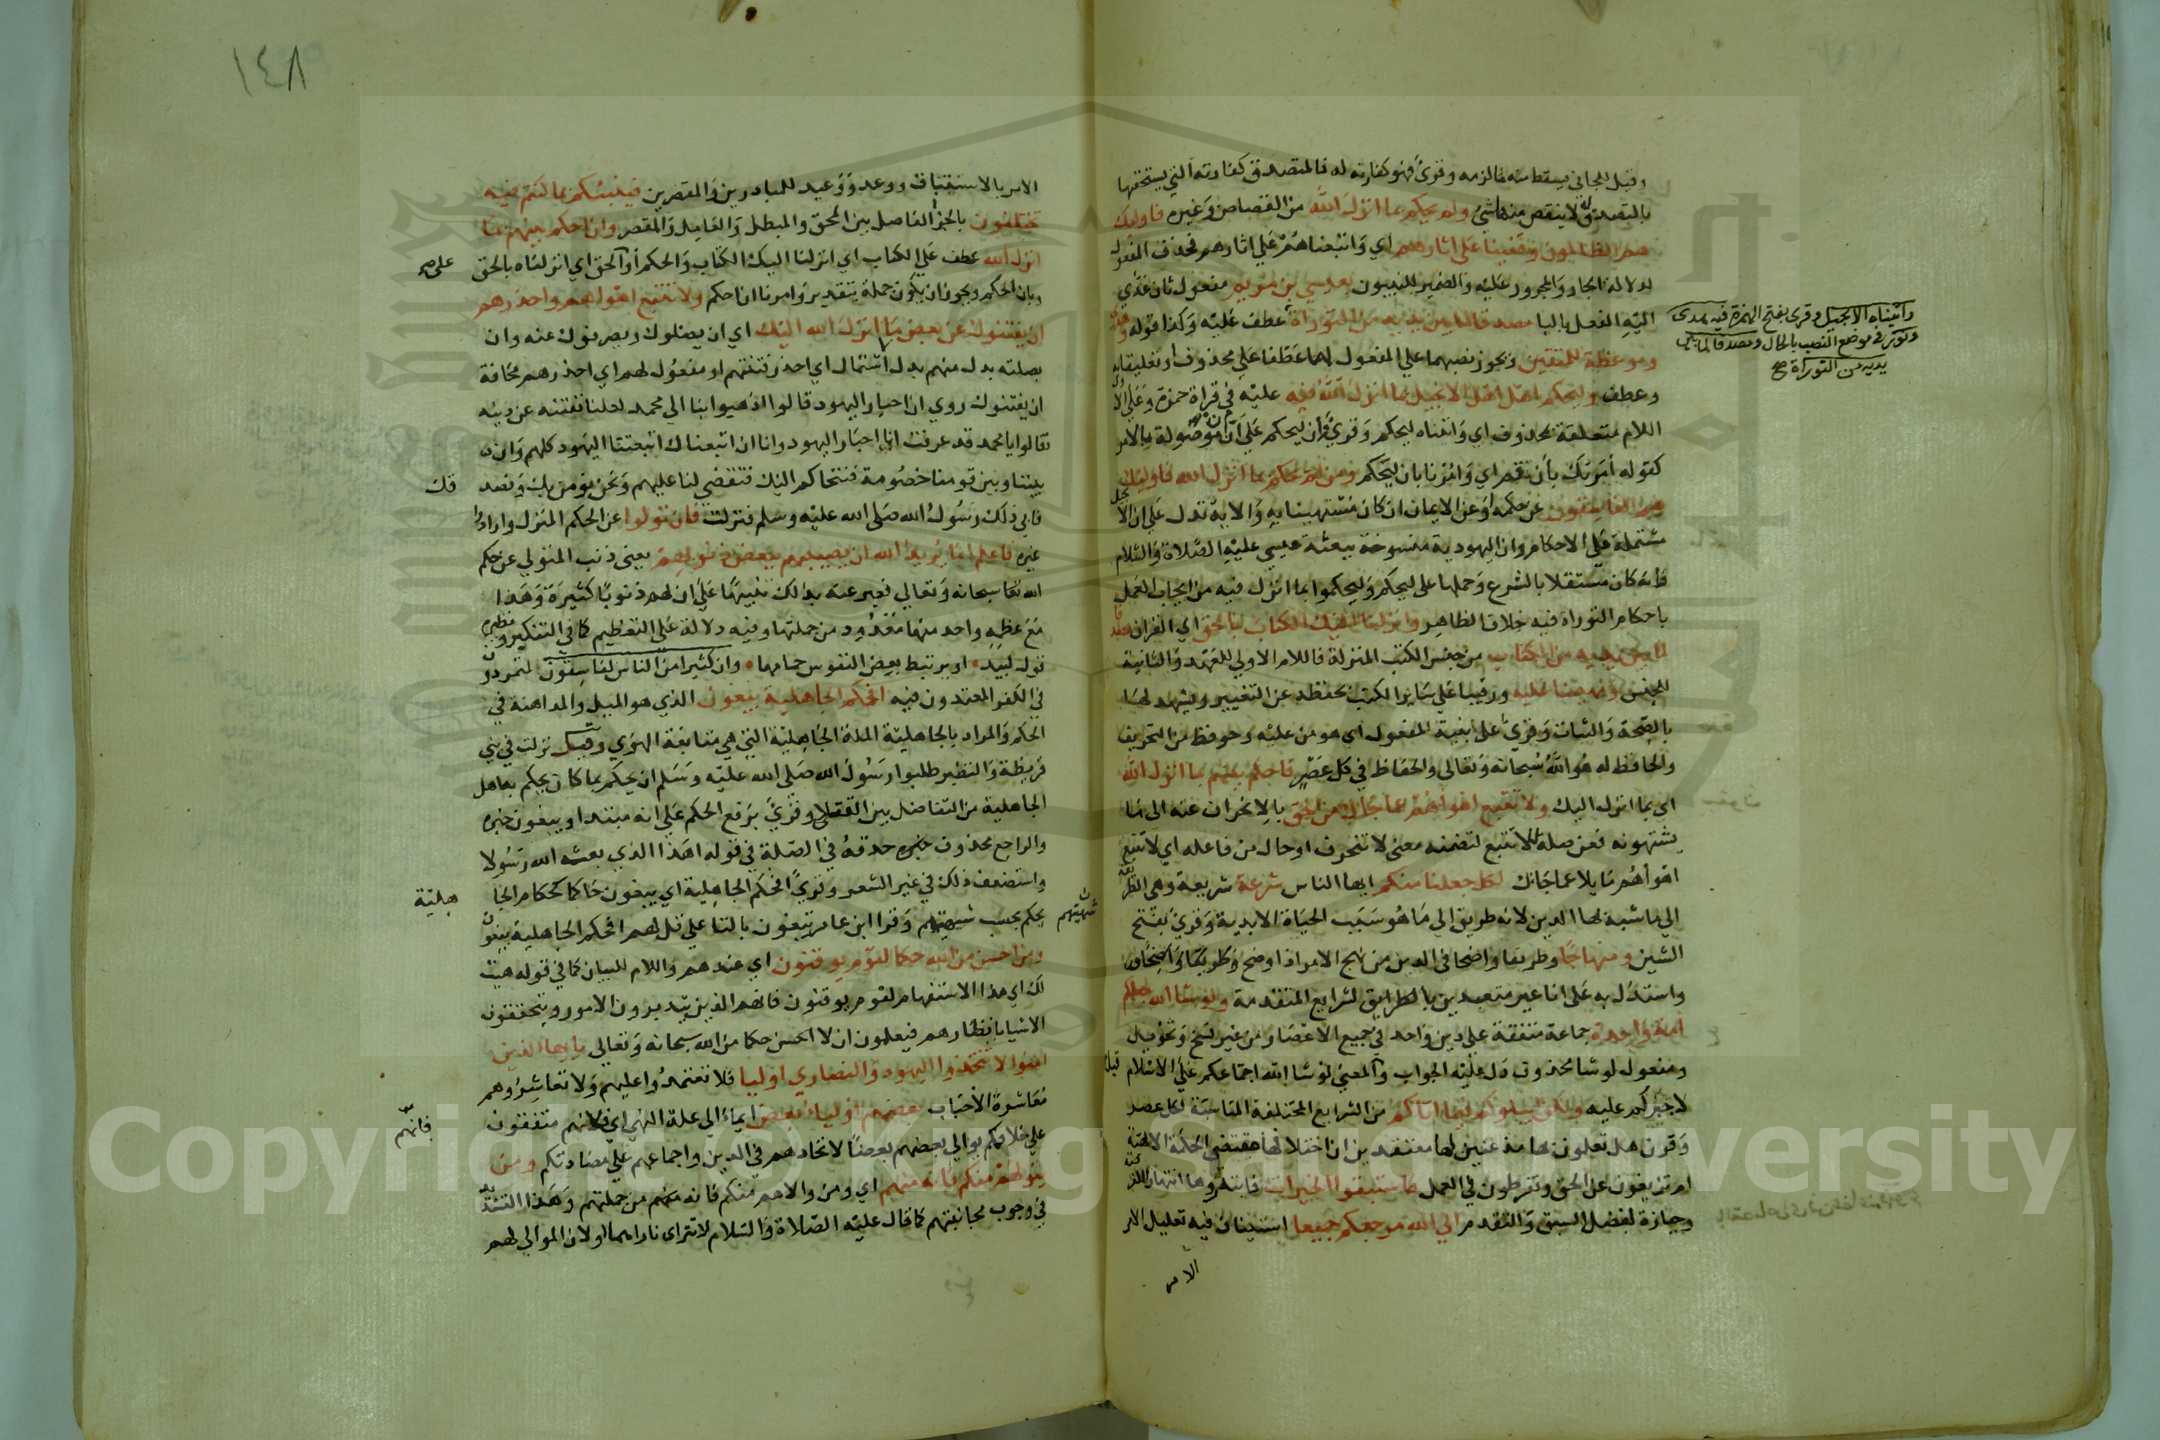 وقيل للجاني يسقط عنه ما لزمه وقرئ فهو كفارته له فالمتصدق كفارته التي يستحقها
بالتصدق له لا ينقص منها شئ ولم يحكم بما انزل الله من القصاص وغيره فاوليك
هم الظالمون وقفينا على اثارهم اي واتبعناهم على اثارهم فحذف المفعول
لدلالة الجار والمجرور عليه والضمير للنبيون بعيسي بن مريم مفعول ثان عدي
اليه الفعل بالبا مصدقا لما بين يديه من التوراة عطف عليه وكذا قوله وهدى
وموعظة للمتقين ويجوز نصبهما علي المفعول لهما عطفا علي محذوف او تعليقا به
وعطف وليحكم اهل الانجيل بما انزل الله فيه عليه في قراة حمزة وعلي الاول
اللام متعلقة بمحذوف اي واتيناه ليحكم وقرئ وان ليحكم على ان موصولة بالامر
كقوله امرتك بان قم اي وامرنا بان ليحكم ومن لم يحكم بما انزل الله فاوليك
هم الفاسقون عن حكمه او عن الايمان ان كان مستهينا به والاية تدل على ان الانجيل
مشتملة علي الاحكام وان اليهودية منسوخة ببعثة عيسي عليه الصلاة والسلام
وانه كان مستقلا بالشرع وحملها على ليحكم وليحكموا بما انزل فيه من ايجاب العمل
باحكام التوراة فيه خلاف الظاهر وانزلنا اليك الكتاب بالحق اي القران مصدقا
لما بين يديه من الكتاب من جنس الكتب المنزلة فاللام الاولي للعهد والثانية
للجنس ومهيمنا عليه ورقيبا على ساير الكتب يحفظه عن التغيير ويشهد لها
بالصحة والثبات وقرئ علي بنية المفعول اي هومن عليه وحوفظ من التحريف
والحافظ له هو الله سبحانه وتعالى والحفاظ في كل عصر فاحكم بينهم بما انزل الله
اي بما انزل اليك ولا تتبع اهواهم عما جاك من الحق بالانحراف عنه الى ما
يشتهونه فعن صلة للاتتبع لتضمنه معنى لا تنحرف او حال من فاعله اي لا تتبع
اهواهم مايلا عما جاك لكل جعلنا منكم ايها الناس شرعة شريعة وهي الطريقة
الي ما شبه لها الدين لانه طريق الي ما هو سبب الحياة الابدية وقرئ بفتح
الشين ومنهاجا وطريقا واضحا في الدين من نهج الامر اذا اوضح
واستدل به على انا غير متعبدين بالطرايق لشرايع المتقدمة ولو شا الله لجعلكم
امة واحدة جماعة متفقة علي دين واحد في جميع الاعصار من غير نسخ وتحويل
ومفعول لو شا محذوف دل عليه الجواب والمعنى لو شا الله اجتماعكم على الاسلام
لاجبركم عليه ولكن ليبلوكم فيما اتاكم من الشرايع المختلفة المناسبة لكل عصر
وقرن هل تعملون بها مذعنين لها معتقدين ان اختلافها مقتضي الحكمة الالهية
ام تزيغون عن الحق وتفرطون في العمل فاستبقوا الخيرات فابتدروها انتهازا للفرصة
وحيازة لفضل السبق والتقدم الي الله مرجعكم جميعا استيناف فيه تعليل الامر
الامر
واتيناه الانجيل وقرى بفتح الهمزة فيه هدى
ونور في موضع النصب بالحال ومصدقا لما بين
يديه من التوراة صح
١٤٨
الامر بالاستباق ووعد ووعيد للمبادرين والمقصرين فينبئكم بما كنتم فيه
تختلفون بالجزا الفاصل بين المحق والمبطل والعامل والمقصر وان احكم بينهم بما
انزل الله عطف علي الكتاب اي انزلنا اليك الكتاب والحكم او الحق اي انزلناه بالحق
وبان احكم ويجوز ان يكون جملة بتقدير وامرنا ان احكم ولا تتبع اهواهم واحذرهم
ان يفتنوك عن بعض ما انزل الله اليك اي ان يضلوك ويصرفوك عنه وان
بصلته بدل منهم بدل اشتمال اي احذر فتنتهم او مفعول له اي احذرهم مخافة
ان يفتنوك روي ان احبار اليهود قالوا اذهبوا بنا الي محمد لعلنا نفتنه عن دينه
فقالوا يا محمد قد عرفت انا احبار اليهود وانا ان اتبعناك اتبعتنا اليهود كلهم وان
بيننا وبين قومنا خصومة فنتحاكم اليك فتقضي لنا عليهم ونحن نؤمن بك ونصدقك
فابي ذلك رسول الله صلى الله عليه وسلم فنزلت فان تولوا عن الحكم المنزل وارادوا
غيره فاعلم انما يريد الله ان يصيبهم ببعض ذنوبهم يعنى ذنب المتولي عن حكم
الله سبحانه وتعالي فعبر عنه بذلك تنبيها على ان لهم ذنوبا كثيرة وهذا
مع عظمه واحد منها معدود من جملتها وفيه دلالة على التعظيم كما في التنكير ونظيره
قوله لبيد او يرتبط بعض النفوس حمامها وان كثيرا من الناس لفاسقون لتمردون
في الكفر المعتدون فيه افحكم الجاهلية يبغون الذي هو الميل والمداهنة في
الحكم والمراد بالجاهلية الملة الجاهلية التي هي متابعة الهوي وقيل نزلت في بني
قريظة والنظير طلبوا رسول الله صلى الله عليه وسلم ان يحكم بما كان يحكم به اهل
الجاهلية من التفاضل بين القتلى وقرئ برفع الحكم على انه مبتدا ويبغون خبره
والراجع محذوف حذفه في الصلة في قوله اهذا الذي بعث الله رسولا
واستضعف ذلك في غير الشعر وقرئ افحكم الجاهلية اي يبغون حاكما كحكام الجا
هلية
يحكم بحسب شهيتهم وقرا ابن عامر تبغون بالتا علي قل لهم افحكم الجاهلية تبغون
ومن احسن من الله حكما لقوم يوقنون اي عندهم واللام للبيان كما في قوله هيت
لك اي هذا الاستفهام لقوم يوقنون فانهم الذين يتدبرون الامور ويتحققون
الاشيا بانظارهم فيعلمون ان لا احسن حكما من الله سبحانه وتعالى يا ايها الذين
امنوا لا تتخذوا اليهود والنصاري اوليا فلا تعتمدوا عليهم ولا تعاشروهم
معاشرة الاحباب بعضهم اوليا بعض ايماء الي علة النهي اي فانهم متفقون
علي خلافكم يوالي بعضهم بعضا لاتحادهم في الدين واجماعهم علي مضادتكم ومن
يتولهم منكم فانه منهم اي ومن والاهم منكم فانه منهم من جملتهم وهذا التشديد
في وجوب مجانبتهم كما قال عليه الصلاة والسلام لا تتراى ناراهما او لان الموالي لهم
شهيتهم
فانهم